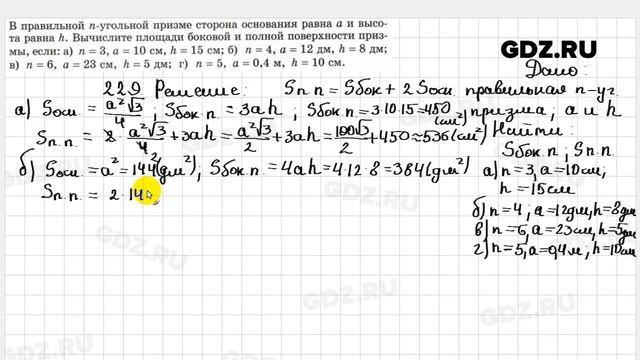 В правильной n-угольной призме сторона основания равна a и высо-
та равна h. Вычислите площади боковой и полной поверхности приз-
мы, если: а) n = 3, a = 10 см, h = 15 см; б) n = 4, a = 12 дм, h = 8 дм;
в) n = 6, a = 23 см, h = 5 дм; г) n = 5, a = 0,4 м, h = 10 см.
GDZ.RU
Дано:
229 Решение: Sп.п = Sбок + 2Sосн. правильная n-уг.
призма; a и h
а) Sосн. = a²√3/4; Sбок.п. = 3ah; Sбок.п. = 3·10·15 = 450 (см²)
Найти:
Sп.п. = 2·a²√3/4 + 3ah = a²√3/2 + 3ah = 100√3/2 + 450 ≈ 536 (см²)
Sбок.п; Sп.п.
б) Sосн. = a² = 144 (дм²); Sбок.п. = 4ah = 4·12·8 = 384 (дм²)
а) n = 3, a = 10см,
h = 15см
Sп.п. = 2·14
б) n = 4, a = 12дм, h = 8дм
в) n = 6, a = 23см, h = 5дм
г) n = 5, a = 0,4м, h = 10см